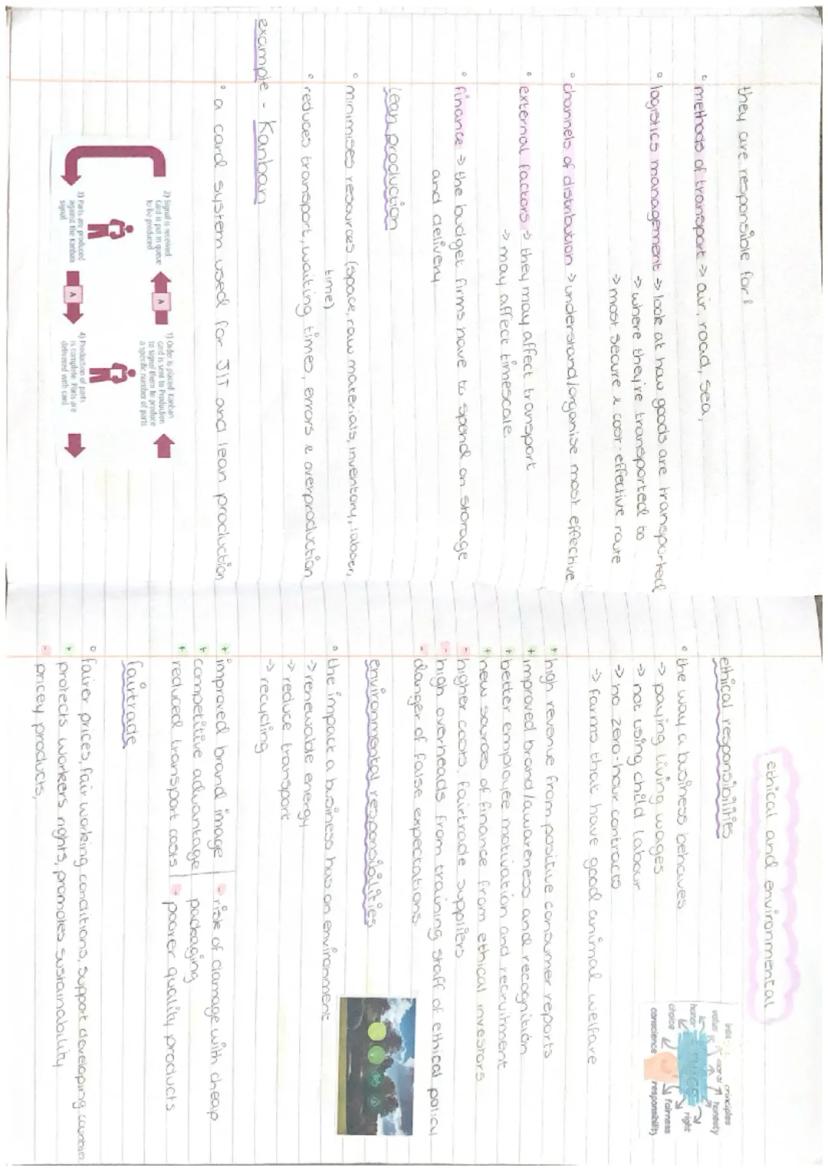 they are responsible for:
° methods of transport → air, road, sea,
° logistics management → look at how goods are transported
→ where they're transported to
→ most secure & cost-effective route
° channels of distribution → understand/organise most effective
° external factors → they may affect transport
→ may affect timescale
° finance → the budget firms have to spend on storage
and delivery
lean production
° minimises resources (space, raw materials, inventory, labour,
time)
° reduces transport, waiting times, errors & overproduction
example - Kanban
° a card system used for JIT and lean production
2) Signal is received
Card is put in queue
to be produced
A
1) Order is placed. Kanban
card is sent to Production
to signal them to produce
a specific number of parts
3) Parts are produced
against the Kanban
signal
A
4) Production of parts
is complete. Parts are
delivered with card
ethical and environmental
ethical responsibilities
° the way a business behaves
→ paying living wages
→ not using child labour
→ no zero-hour contracts
→ farms that have good animal welfare
principles
value
moral
honesty
honor
right
choice
fairness
conscience
responsibility
+ high revenue from positive consumer reports
+ improved brand/awareness and recognition
+ better employee motivation and recruitment
+ new sources of finance from ethical investors
- higher costs. fairtrade suppliers
- high overheads from training staff of ethical policy
- danger of false expectations
environmental responsibilities
° the impact a business has on environment
→ renewable energy
→ reduce transport
→ recycling
+ improved brand image
+ competitive advantage
+ reduced transport costs
- risk of damage with cheap
packaging
- poorer quality products
fairtrade
° fairer prices, fair working conditions, support developing
+ protects workers rights, promotes sustainability
- pricey products,